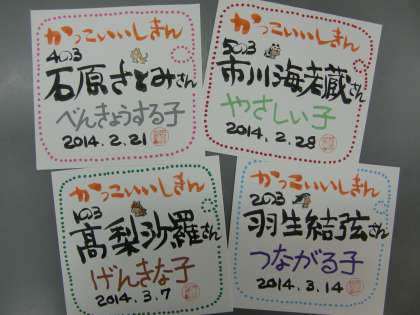 かっこいいしきん
4の3
石原さとみさん
べんきょうする子
2014.2.21
かっこいいしきん
5の3
市川海老蔵さん
やさしい子
2014.2.28
かっこいいしきん
1の3
高梨沙羅さん
げんきな子
2014.3.7
かっこいいしきん
2の3
羽生結弦さん
つながる子
2014.3.14